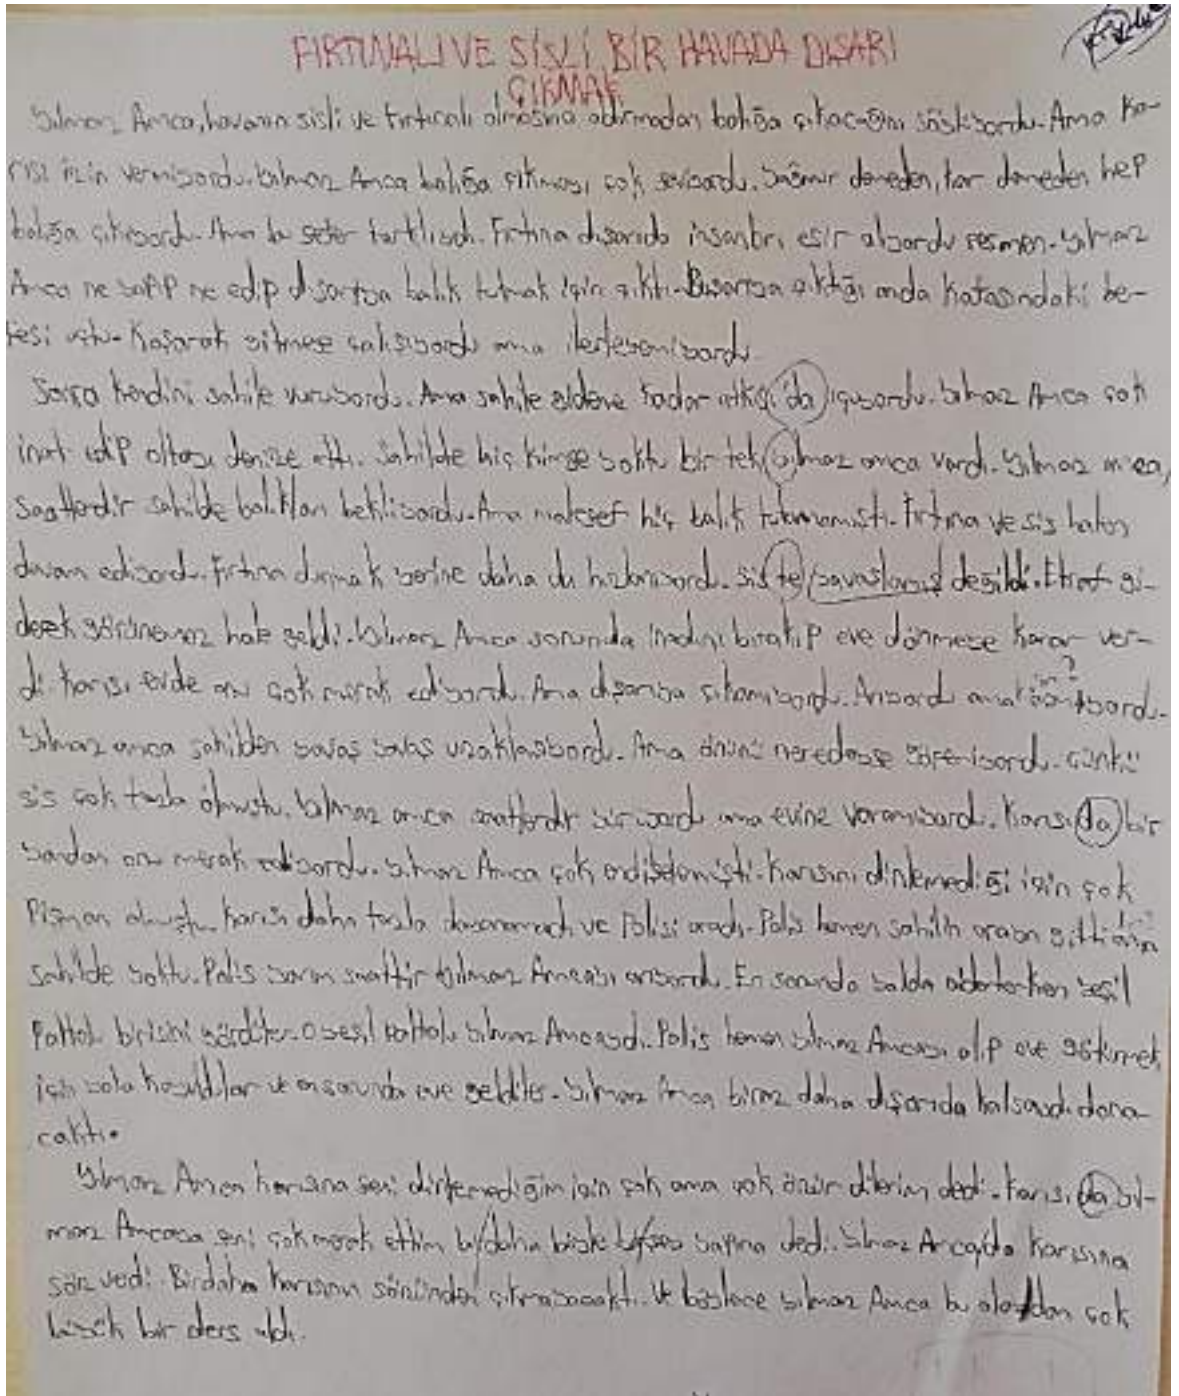 FIRTINALI VE SİSLİ BİR HAVADA DIŞARI
ÇIKMAK
Yılmaz Amca, havanın sisli ve fırtınalı olmasına aldırmadan balığa çıkacağını söylüyordu. Ama ka-
rısı izin vermiyordu. Yılmaz Amca balığa çıkmayı çok seviyordu. Yağmur demeden, kar demeden hep
balığa çıkıyordu. Ama bu sefer farklıydı. Fırtına dışarıda insanları esir alıyordu resmen. Yılmaz
Amca ne yapıp ne edip dışarıya balık tutmak için çıktı. Dışarıya çıktığı anda kafasındaki be-
resi uçtu. Koşarak gitmeye çalışıyordu ama ilerleyemiyordu.
Sonra kendini sahile vuruyordu. Ama sahile gidene kadar atkısı da uçuyordu. Yılmaz Amca çok
inat edip oltayı denize attı. Sahilde hiç kimse yoktu bir tek yılmaz amca vardı. Yılmaz amca,
saatlerdir sahilde balıkları bekliyordu. Ama malesef hiç balık tutamamıştı. Fırtına ve sis halen
devam ediyordu. Fırtına durmak yerine daha da hızlanıyordu. Sis te yavaşlamış değildi. Etraf gi-
derek görünemez hale geldi. Yılmaz Amca sonunda inadını bırakıp eve dönmeye karar ver-
di. Karısı evde onu çok merak ediyordu. Ama dışarıya çıkamıyordu. Arıyordu ama
Yılmaz amca sahilden yavaş yavaş uzaklaşıyordu. Ama önünü neredeyse göremiyordu. Çünkü
sis çok fazla olmuştu. Yılmaz amca saatlerdir yürüyordu ama evine varamıyordu. Karısı da bir
yandan onu merak ediyordu. Yılmaz Amca çok endişelenmişti. Karısını dinlemediği için çok
Pişman olmuştu. Karısı daha fazla dayanamadı ve Polisi aradı. Polis hemen sahilin
sahilde yoktu. Polis yarım saattir Yılmaz Amcayı arıyordu. En sonunda yolda giderlerken yeşil
Paltolu birisini gördüler. O yeşil paltolu Yılmaz Amcaydı. Polis hemen yılmaz Amcayı alıp eve götürmek
için yola koyuldular ve en sonunda eve geldiler. Yılmaz Amca biraz daha dışarıda kalsaydı dona-
caktı.
Yılmaz Amca karısına seni dinlemediğim için çok ama çok özür dilerim dedi. Karısı da yıl-
maz Amcaya seni çok merak ettim bi daha böyle bişey yapma dedi. Yılmaz Amca da karısına
söz verdi. Birdaha karısının sözünden çıkmayacaktı. Ve böylece yılmaz Amca bu olaydan çok
büyük bir ders aldı.